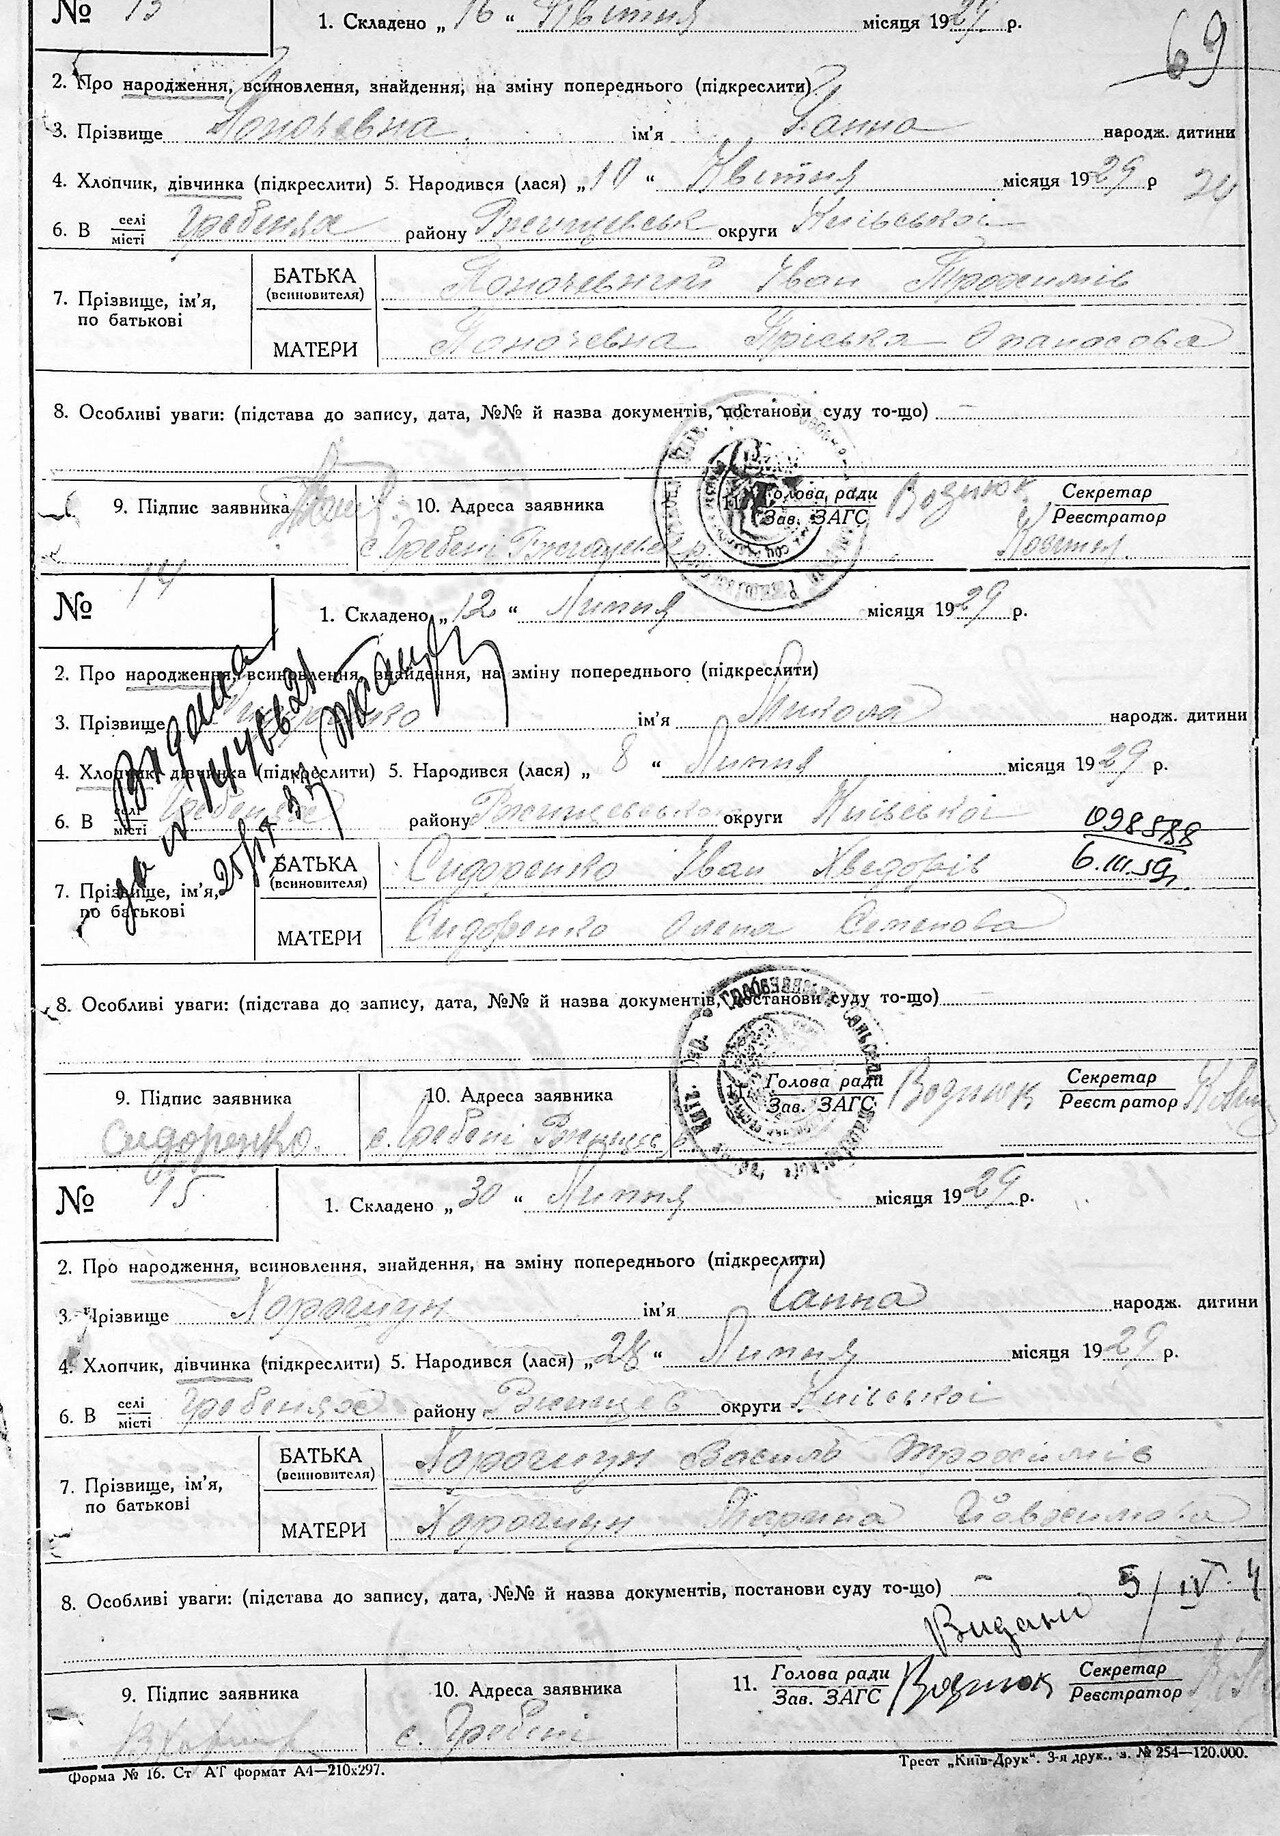 № 13
1. Складено „ 16 “ Квітня місяця 1929 р.
69
2. Про народження, всиновлення, знайдення, на зміну попереднього (підкреслити)
3. Прізвище Поночевна ім'я Ганна народж. дитини
4. Хлопчик, дівчинка (підкреслити) 5. Народився (лася) „ 10 “ Квітня місяця 1929 р
6. В селі місті Гребенях району Ржищевськ округи Київської
7. Прізвище, ім'я, по батькові
БАТЬКА (всиновителя) Поночевний Іван Трохимів
МАТЕРИ Поночевна Пріська Опанасова
8. Особливі уваги: (підстава до запису, дата, №№ й назва документів, постанови суду то-що) —
9. Підпис заявника
10. Адреса заявника
с. Гребені Ржищевськ р.
11. Голова ради Зав. ЗАГС Воднюк
Секретар Реєстратор
№ 14
1. Складено „ 12 “ Липня місяця 1929 р.
2. Про народження, всиновлення, знайдення, на зміну попереднього (підкреслити)
3. Прізвище Сидоренко ім'я Микола народж. дитини
4. Хлопчик, дівчинка (підкреслити) 5. Народився (лася) „ 8 “ Липня місяця 1929 р.
6. В селі місті Гребенях району Ржищевськ округи Київської
098588
6.III.59р.
7. Прізвище, ім'я, по батькові
БАТЬКА (всиновителя) Сидоренко Іван Хведорів
МАТЕРИ Сидоренко Олена Семенова
Видана
за №
8. Особливі уваги: (підстава до запису, дата, №№ й назва документів, постанови суду то-що)
9. Підпис заявника
Сидоренко.
10. Адреса заявника
с. Гребені Ржищевс р
11. Голова ради Зав. ЗАГС Воднюк
Секретар Реєстратор
№ 15
1. Складено „ 30 “ Липня місяця 1929 р.
2. Про народження, всиновлення, знайдення, на зміну попереднього (підкреслити)
3. Прізвище Хорошун ім'я Ганна народж. дитини
4. Хлопчик, дівчинка (підкреслити) 5. Народився (лася) „ 28 “ Липня місяця 1929 р.
6. В селі місті Гребенях району Ржищев округи Київської
7. Прізвище, ім'я, по батькові
БАТЬКА (всиновителя) Хорошун Василь Трохимів
МАТЕРИ Хорошун Марина Йовхимова
8. Особливі уваги: (підстава до запису, дата, №№ й назва документів, постанови суду то-що) — 5/IV-4
Видано
9. Підпис заявника
10. Адреса заявника
с. Гребені
11. Голова ради Зав. ЗАГС Воднюк
Секретар Реєстратор
Форма № 16. Ст АТ формат А4—210х297.
Трест „Київ-Друк“. 3-я друк., з. № 254—120.000.